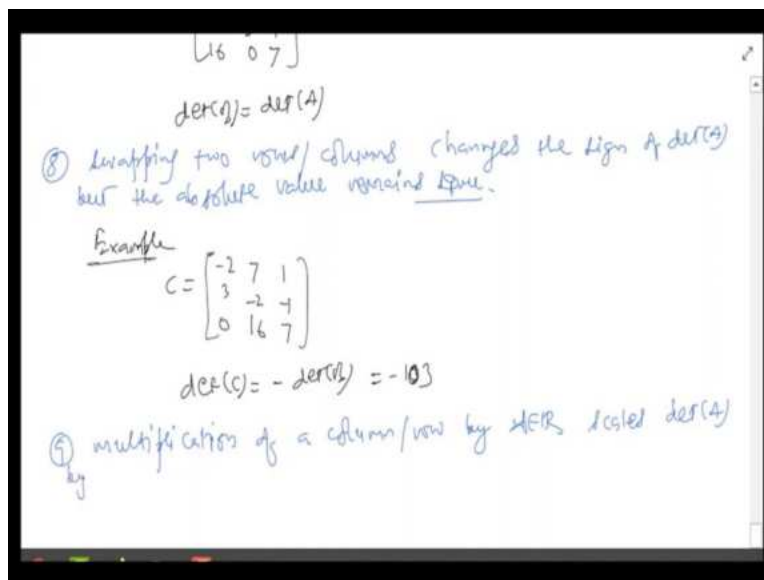 [16 0 7]
det(B) = det(A)
⑧ swapping two rows/columns changes the sign of det(A)
but the absolute value remains same.
Example
C = [-2 7 1
3 -2 -1
0 16 7]
det(C) = - det(B) = -103
⑨ multiplication of a column/row by λ∈R scales det(A)
by